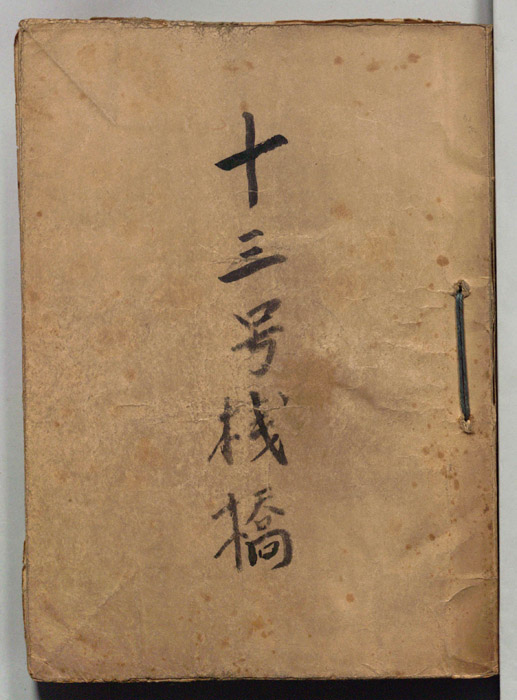 十三号桟橋